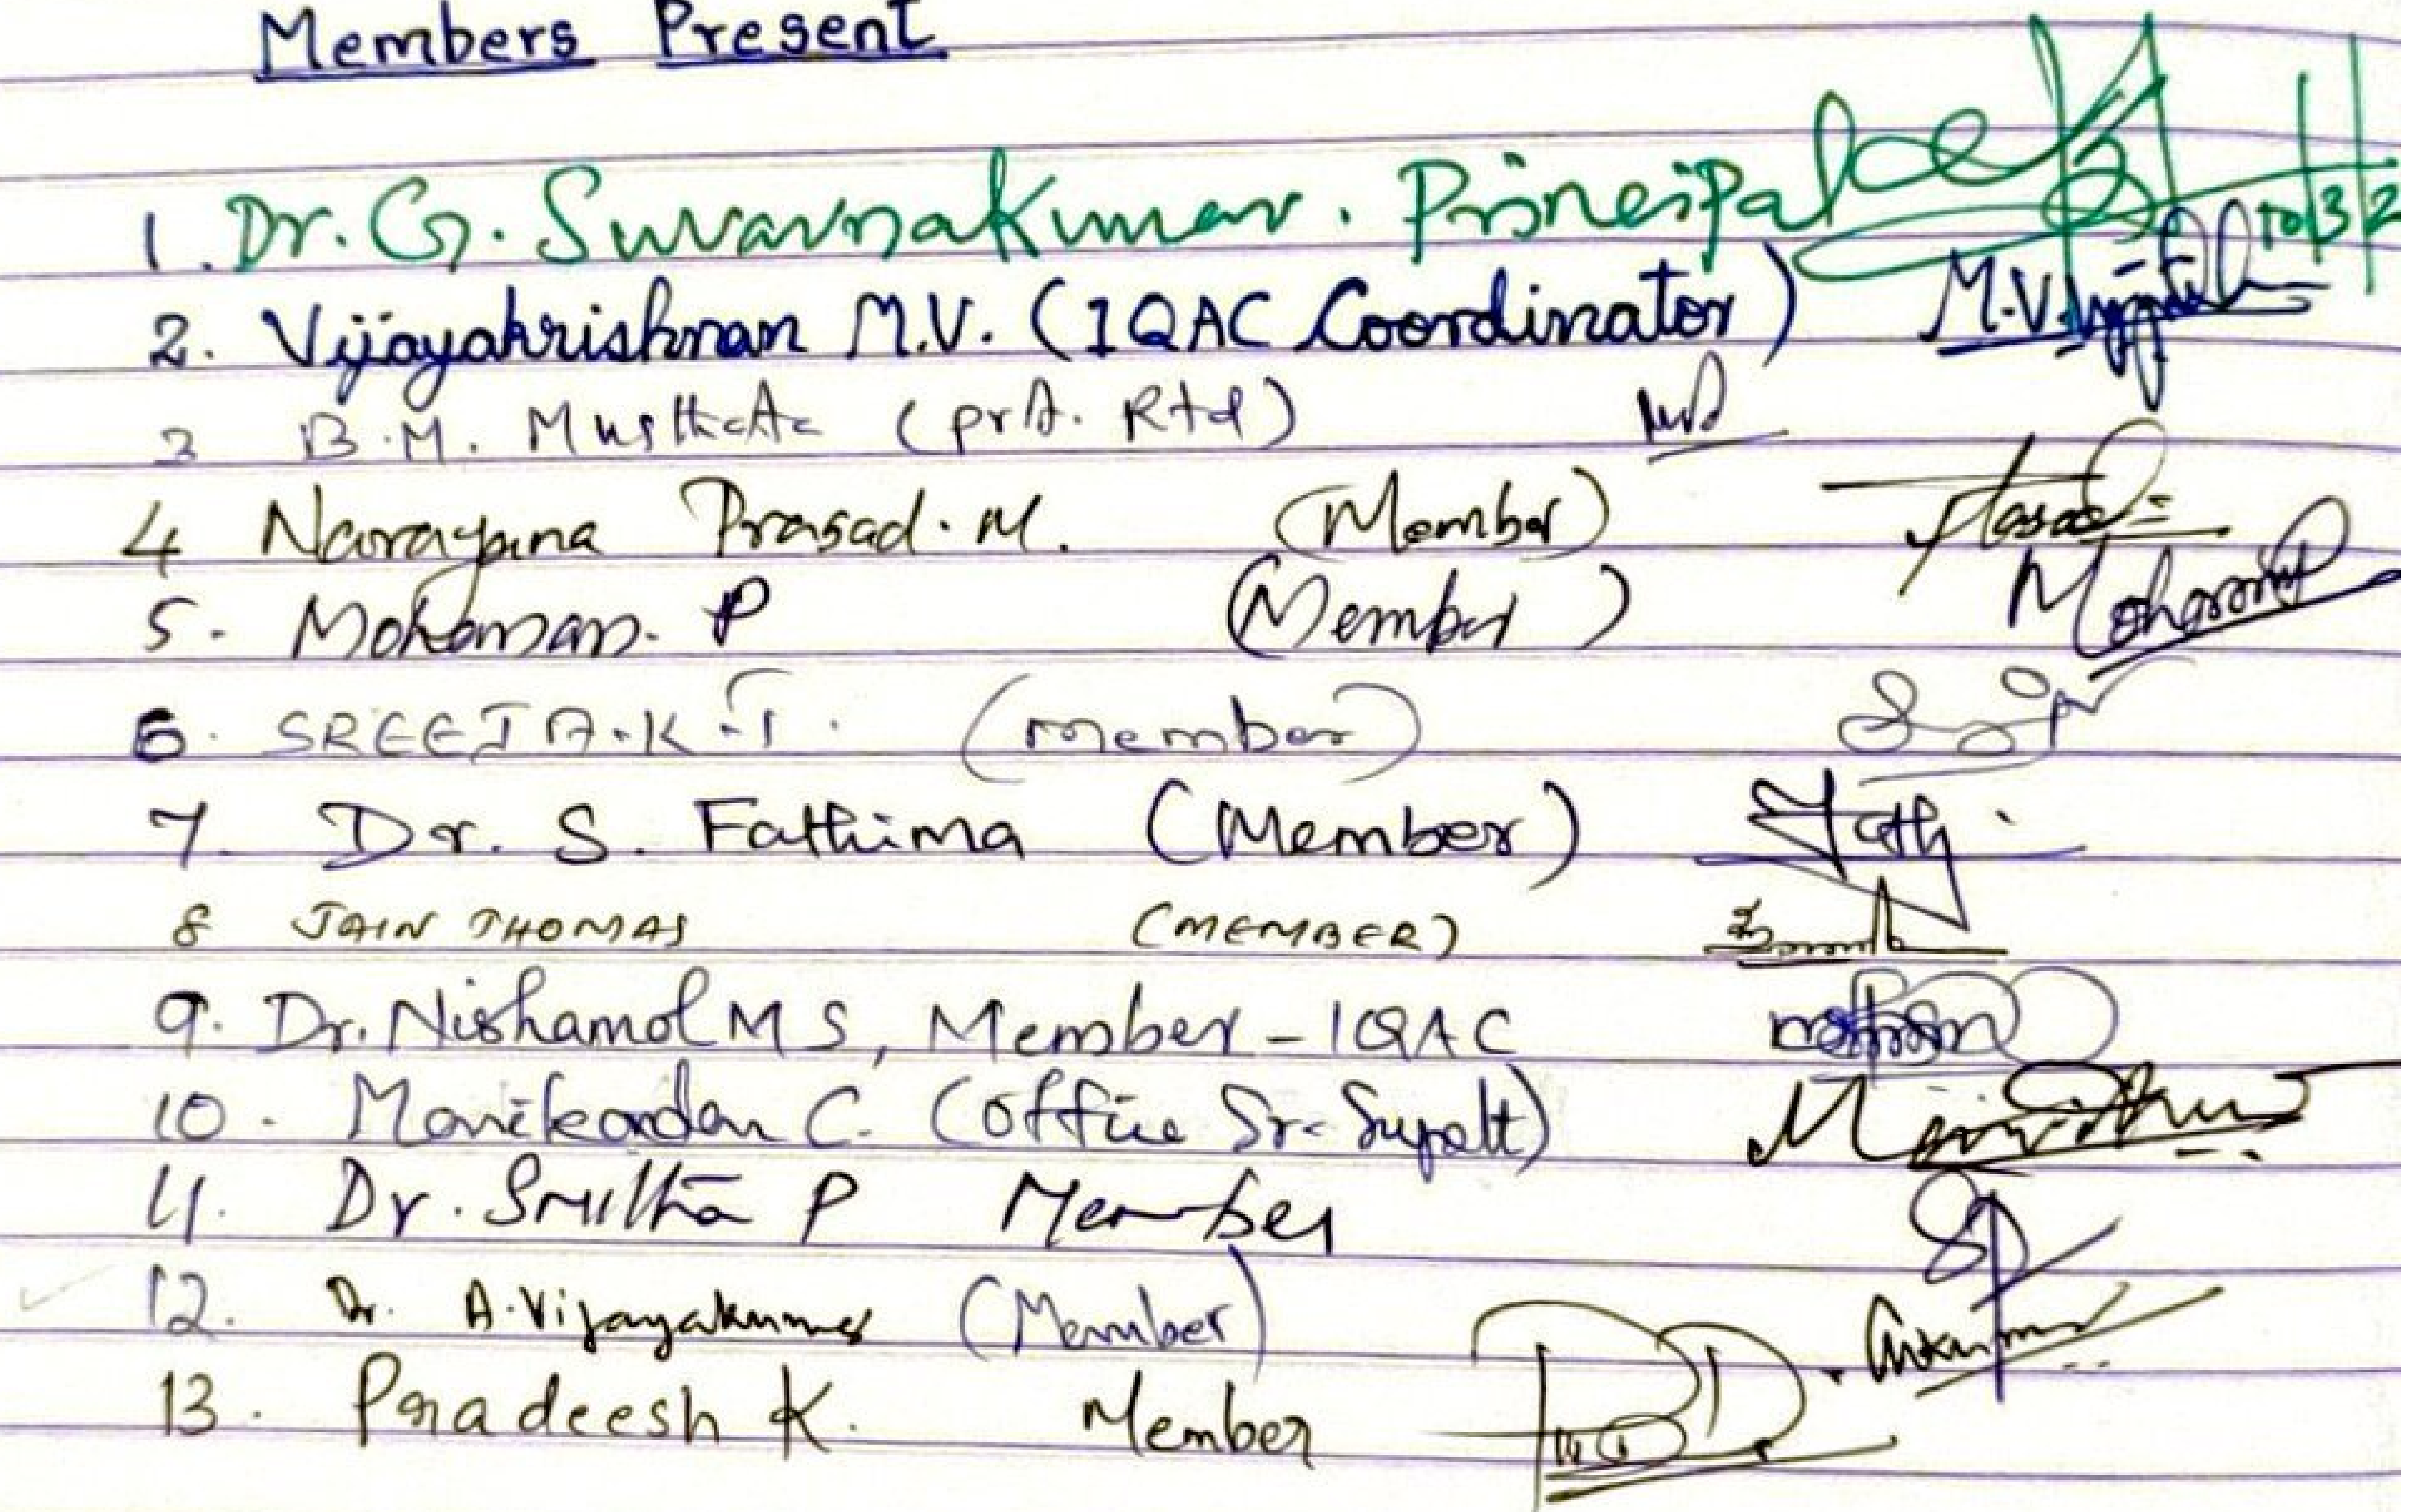 Members Present
1. Dr. G. Suvarnakumar. Principal 10/3/2
2. Vijayakrishnan M.V. (IQAC Coordinator) M.V.
3 B.M. Musthafa (prf. Rtd)
4 Narayana Prasad. M. (Member)
5. Mohanan. P (Member) Mohanan
6. SREEJA.K.T. (Member)
7. Dr. S. Fathima (Member) Fath
8 JAIN THOMAS (MEMBER)
9. Dr. Nishamol M S, Member - IQAC
10. Manikandan C. (Office Sr. Supdt)
11. Dr. Smitha P Member
12. Dr. A. Vijayakumar (Member)
13. Pradeesh K. Member